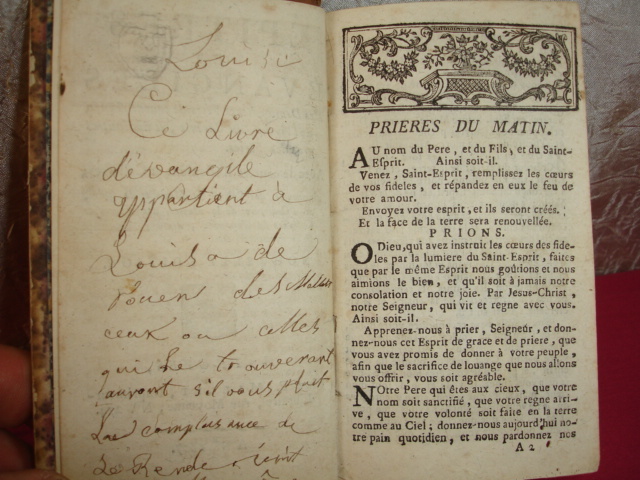 Louise
Ce Livre
d'évangile
appartient à
Louisa de
Rouen des
ceux ou celles
qui le trouveront
auront s'il vous plait
La complaisance de
Le Rende
PRIERES DU MATIN.
AU nom du Pere, et du Fils, et du Saint-
Esprit. Ainsi soit-il.
Venez, Saint-Esprit, remplissez les cœurs
de vos fideles, et répandez en eux le feu de
votre amour.
Envoyez votre esprit, et ils seront créés.
Et la face de la terre sera renouvellée.
PRIONS.
O Dieu, qui avez instruit les cœurs des fide-
les par la lumiere du Saint-Esprit, faites
que par le même Esprit nous goûtions et nous
aimions le bien, et qu'il soit à jamais notre
consolation et notre joie. Par Jesus-Christ,
notre Seigneur, qui vit et regne avec vous.
Ainsi soit-il.
Apprenez-nous à prier, Seigneur, et don-
nez-nous cet Esprit de grace et de priere, que
vous avez promis de donner à votre peuple,
afin que le sacrifice de louange que nous allons
vous offrir, vous soit agréable.
NOtre Pere qui êtes aux cieux, que votre
nom soit sanctifié, que votre regne arri-
ve, que votre volonté soit faite en la terre
comme au Ciel; donnez-nous aujourd'hui no-
tre pain quotidien, et nous pardonnez nos
A 2